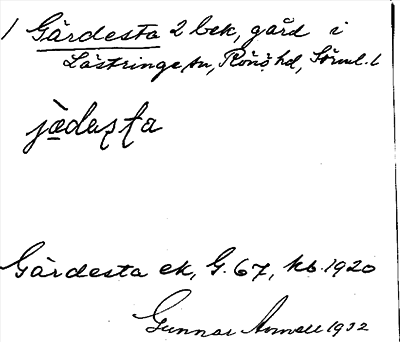 1 Gärdesta 2 bek, gård i
Lästringe sn, Rönö hd, Sörml. l
jä̀dasta
Gärdesta ek, G. 67, kb. 1920
Gunnar 1932